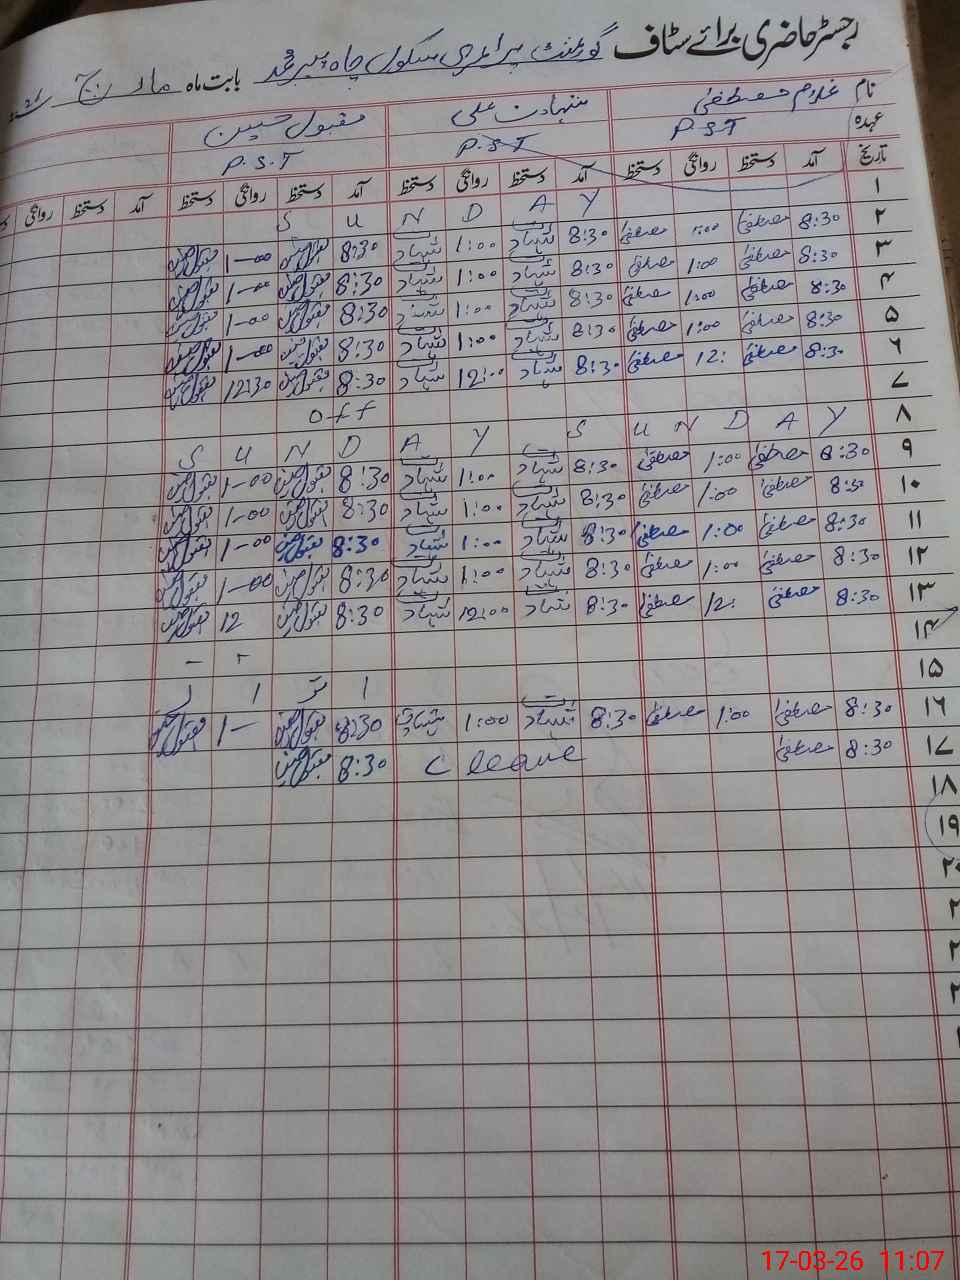 رجسٹر حاضری برائے سٹاف گورنمنٹ پرائمری سکول چاہ پیر محمد بابت ماہ مارچ
نام غلام مصطفیٰ شہادت علی مقبول حسین
عہدہ P.S.T P.S.T P.S.T
تاریخ آمد دستخط روانگی دستخط آمد دستخط روانگی دستخط آمد دستخط روانگی دستخط آمد دستخط روانگی
۱ S U N D A Y
۲ 8:30 مصطفیٰ 1:00 مصطفیٰ 8:30 شہادت 1:00 شہادت 8:30 مقبول حسین 1-00 مقبول حسین
۳ 8:30 مصطفیٰ 1:00 مصطفیٰ 8:30 شہادت 1:00 شہادت 8:30 مقبول حسین 1-00 مقبول حسین
۴ 8:30 مصطفیٰ 1:00 مصطفیٰ 8:30 شہادت 1:00 شہادت 8:30 مقبول حسین 1-00 مقبول حسین
۵ 8:30 مصطفیٰ 1:00 مصطفیٰ 8:30 شہادت 1:00 شہادت 8:30 مقبول حسین 1-00 مقبول حسین
۶ 8:30 مصطفیٰ 12: مصطفیٰ 8:30 شہادت 12:00 شہادت 8:30 مقبول حسین 12:30 مقبول حسین
۷ Off
۸ S U N D A Y S U N D A Y
۹ 8:30 مصطفیٰ 1:00 مصطفیٰ 8:30 شہادت 1:00 شہادت 8:30 مقبول حسین 1-00 مقبول حسین
۱۰ 8:30 مصطفیٰ 1:00 مصطفیٰ 8:30 شہادت 1:00 شہادت 8:30 مقبول حسین 1-00 مقبول حسین
۱۱ 8:30 مصطفیٰ 1:00 مصطفیٰ 8:30 شہادت 1:00 شہادت 8:30 مقبول حسین 1-00 مقبول حسین
۱۲ 8:30 مصطفیٰ 1:00 مصطفیٰ 8:30 شہادت 1:00 شہادت 8:30 مقبول حسین 1-00 مقبول حسین
۱۳ 8:30 مصطفیٰ 12: مصطفیٰ 8:30 شہادت 12:00 شہادت 8:30 مقبول حسین 12 مقبول حسین
۱۴
۱۵ ا تو ا ر
۱۶ 8:30 مصطفیٰ 1:00 مصطفیٰ 8:30 شہادت 1:00 شہادت 8:30 مقبول حسین 1- مقبول حسین
۱۷ 8:30 مصطفیٰ C leave 8:30 مقبول حسین
۱۸
۱۹
۲۰
17-03-26 11:07